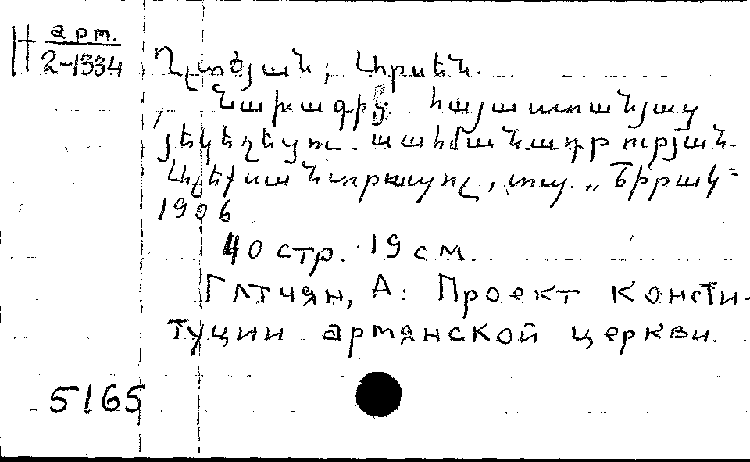 H арт.
2-1334
Ղլտճյան, Արսեն.
Նախագիծ հայաստանյայց
յեկեղեցու սահմանադրության.
Ալեքսանդրապոլ, տպ. „Շիրակ“
1906
40 стр. 19 см.
Глтчян, А: Проект консти-
туции армянской церкви.
5165